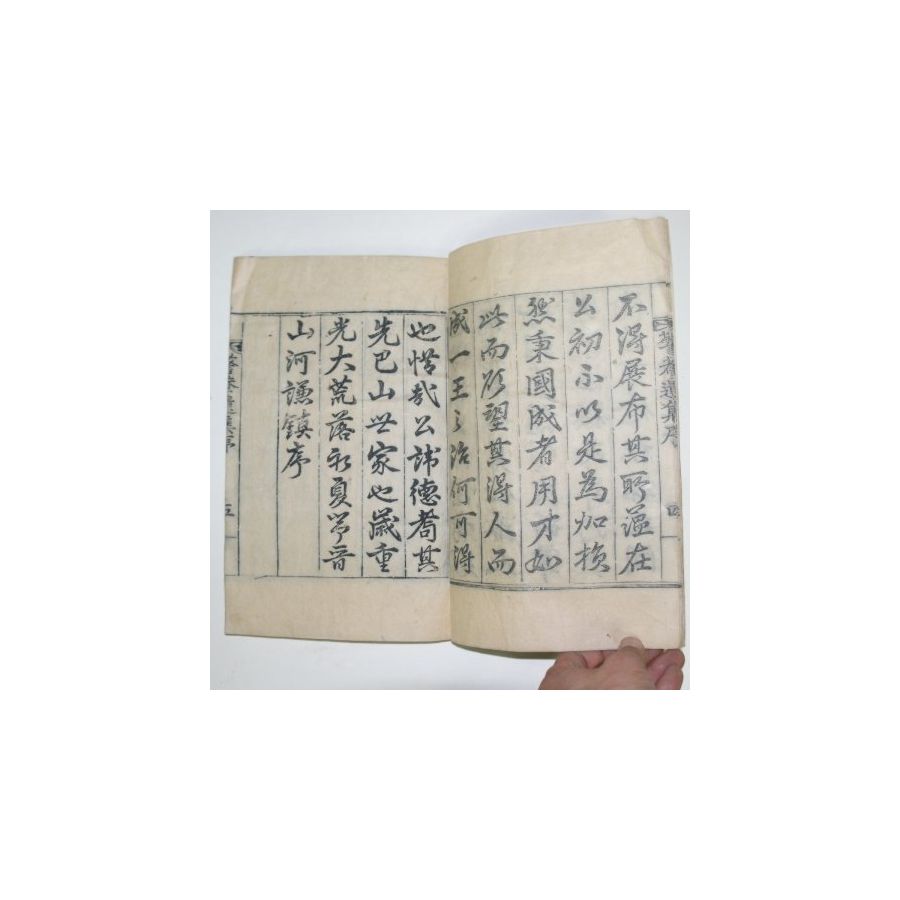 不得展布其所蘊在
公初不以是為加損
然秉國成者用才如
此而所望其得人而
成一王之治何可得
也惜哉公諱德耈其
先巴山世家也歲重
光大荒落永夏節晉
山河謙鎮序
遺集序
四
五